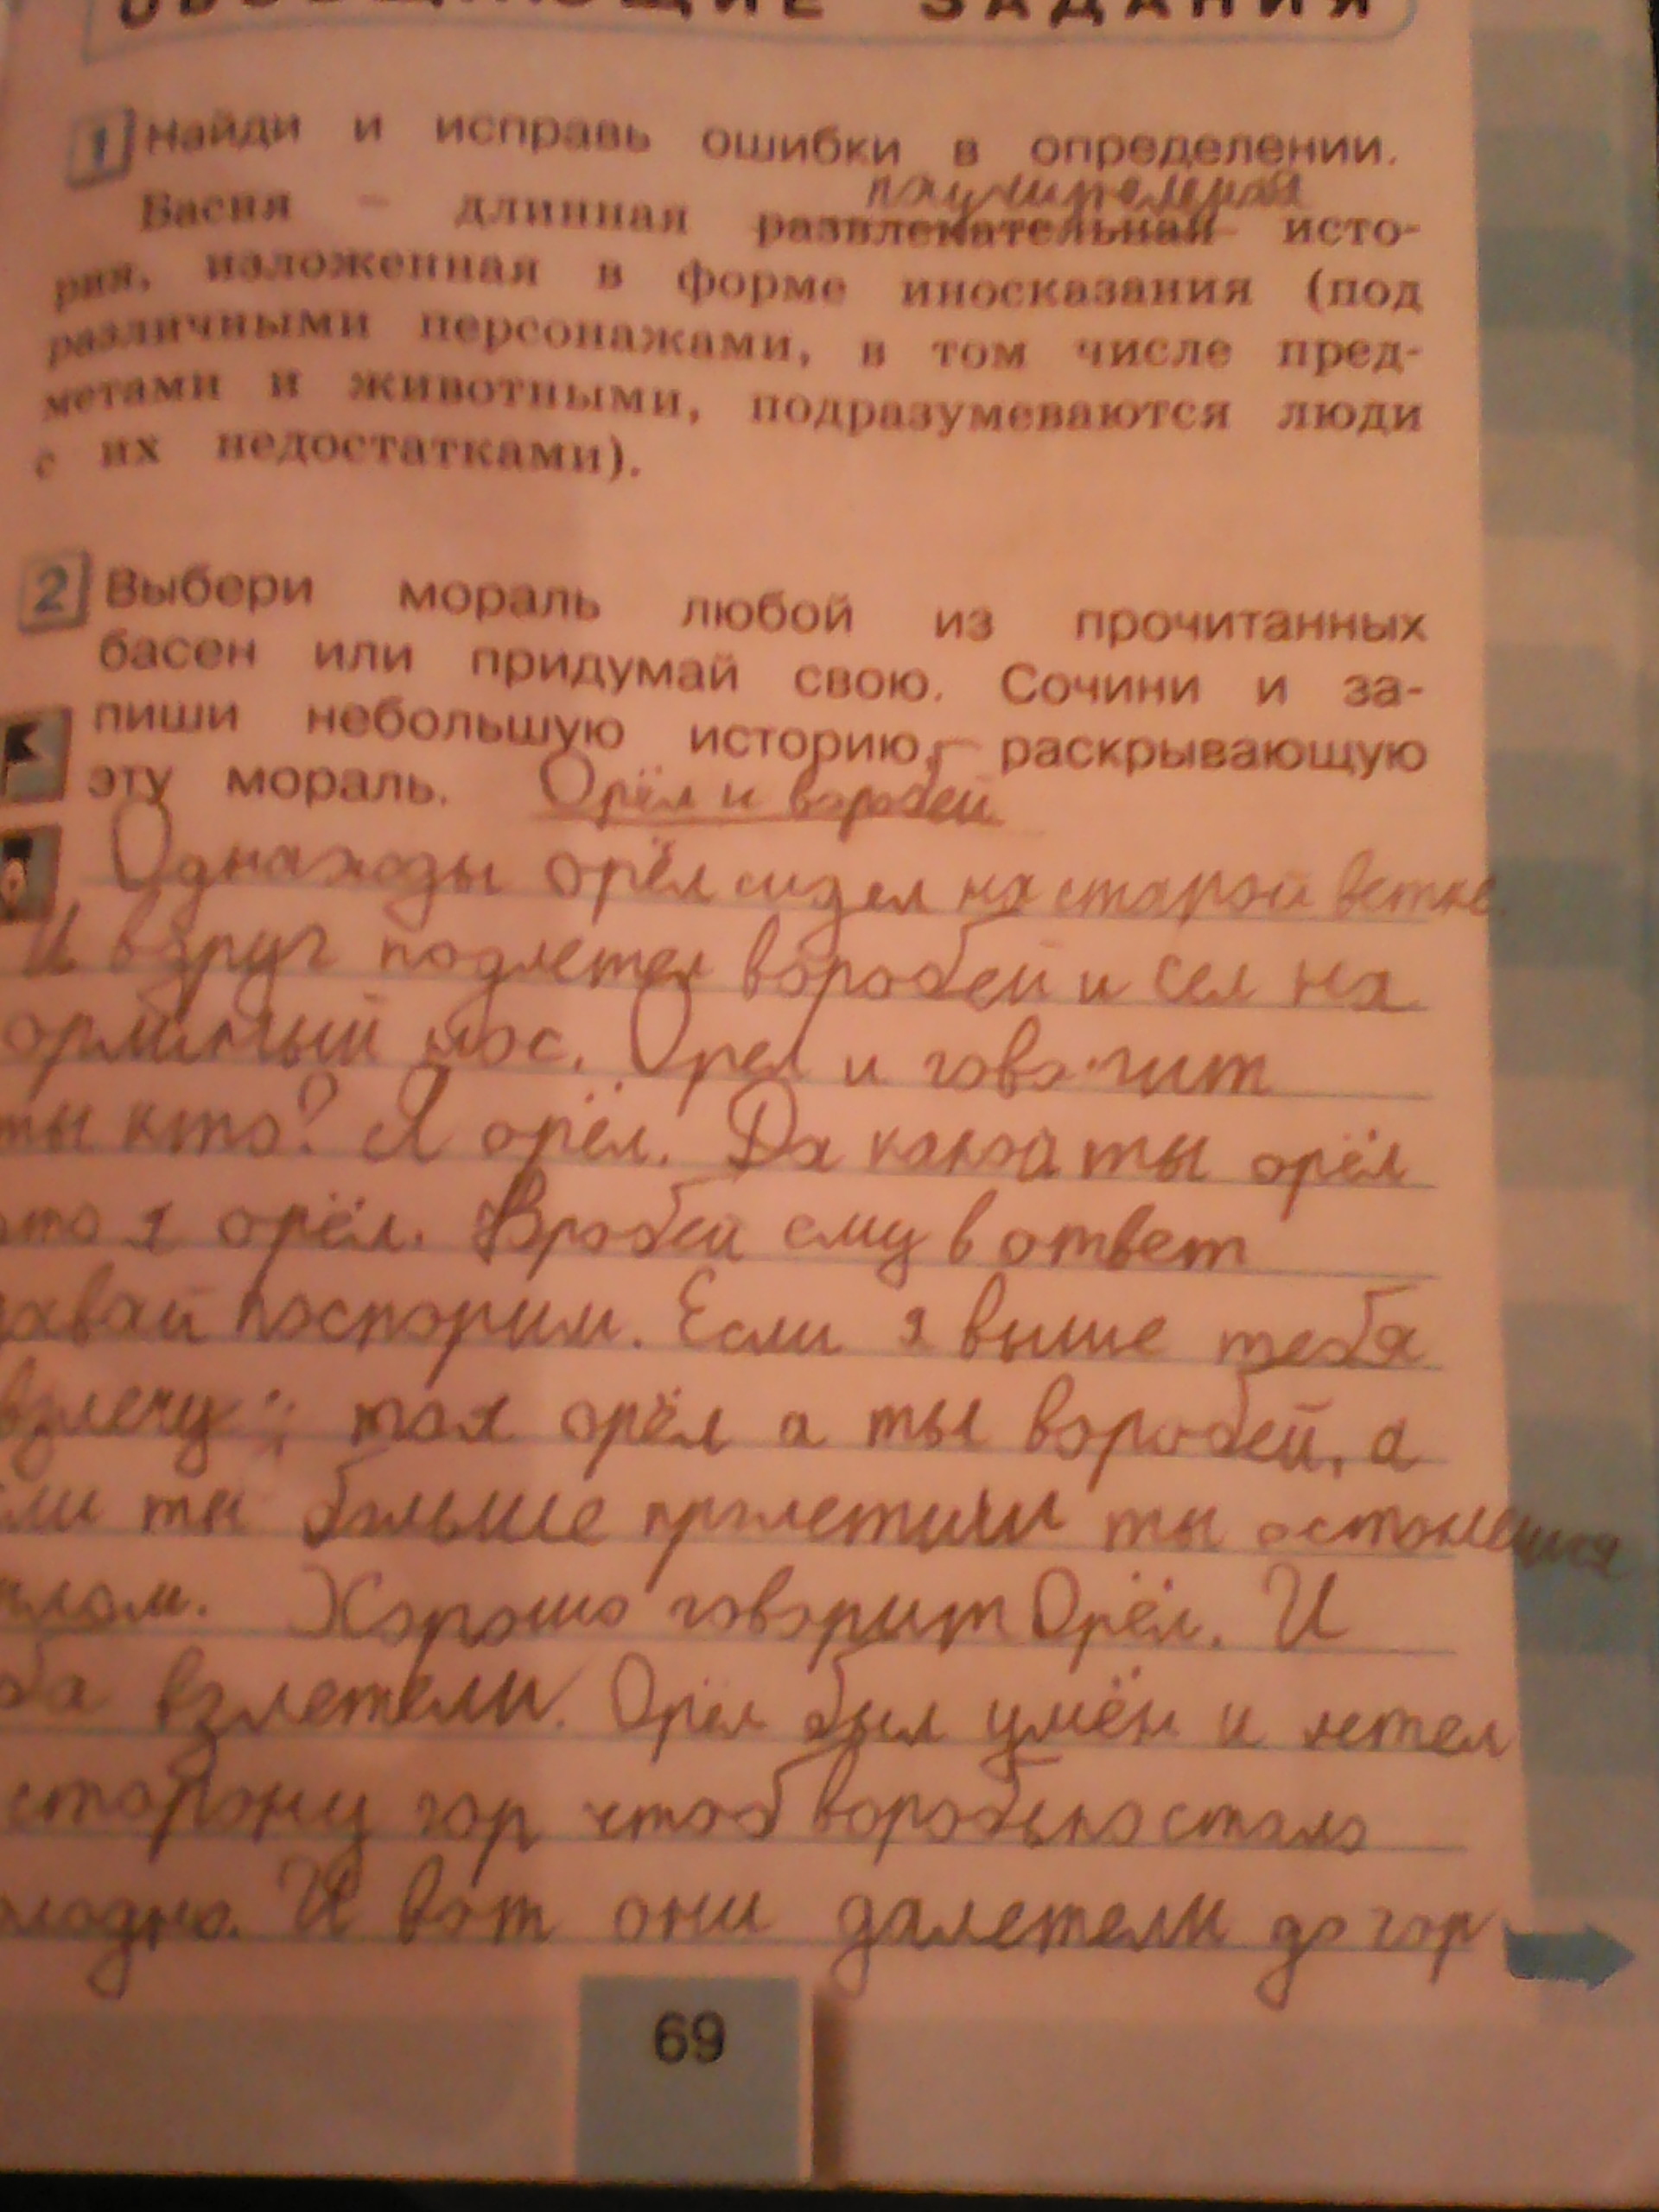 ОБОБЩАЮЩИЕ ЗАДАНИЯ
1 Найди и исправь ошибки в определении.
поучителеная
Басня – длинная развлекательная исто-
рия, изложенная в форме иносказания (под
различными персонажами, в том числе пред-
метами и животными, подразумеваются люди
с их недостатками).
2 Выбери мораль любой из прочитанных
басен или придумай свою. Сочини и за-
пиши небольшую историю, раскрывающую
эту мораль. Орёл и воробей
Однажды орёл сидел на старой ветке.
И вдруг подлетел воробей и сел на
орлиный нос. Орёл и говорит
ты кто? Я орёл. Да какой ты орёл
это я орёл. Вробей ему в ответ
давай поспорим. Если я выше тебя
взлечу, то я орёл а ты воробей, а
ли ты больше пролетиш ты останешся
рлом. Хорошо говорит Орёл. И
ба взлетели. Орёл был умён и летел
сторону гор чтоб воробью стало
олодно. И вот они далетели до гор
69